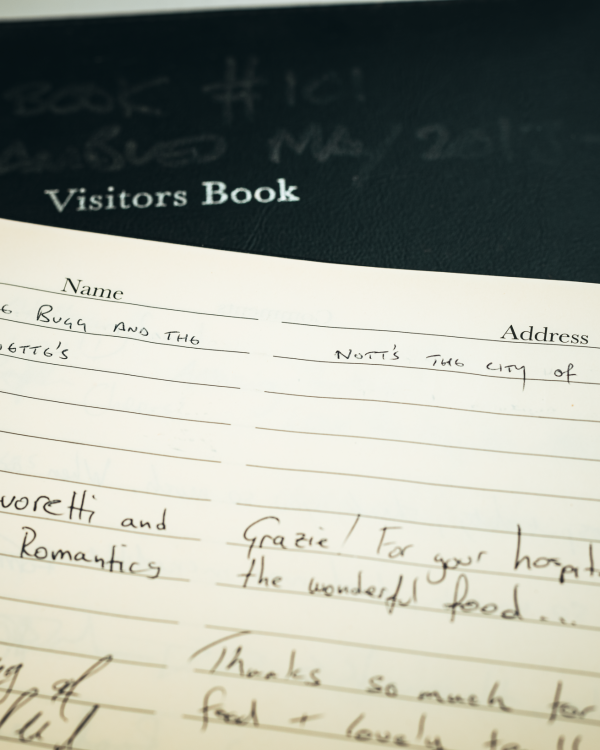 BOOK #10!
MAY 2017-
Visitors Book
Name
Address
BUGG AND THE
NOTT'S THE CITY of
ETTE'S
voretti and
Romantics
Grazie! For your hospit
the wonderful food...
of
Thanks so much for
food + lovely to